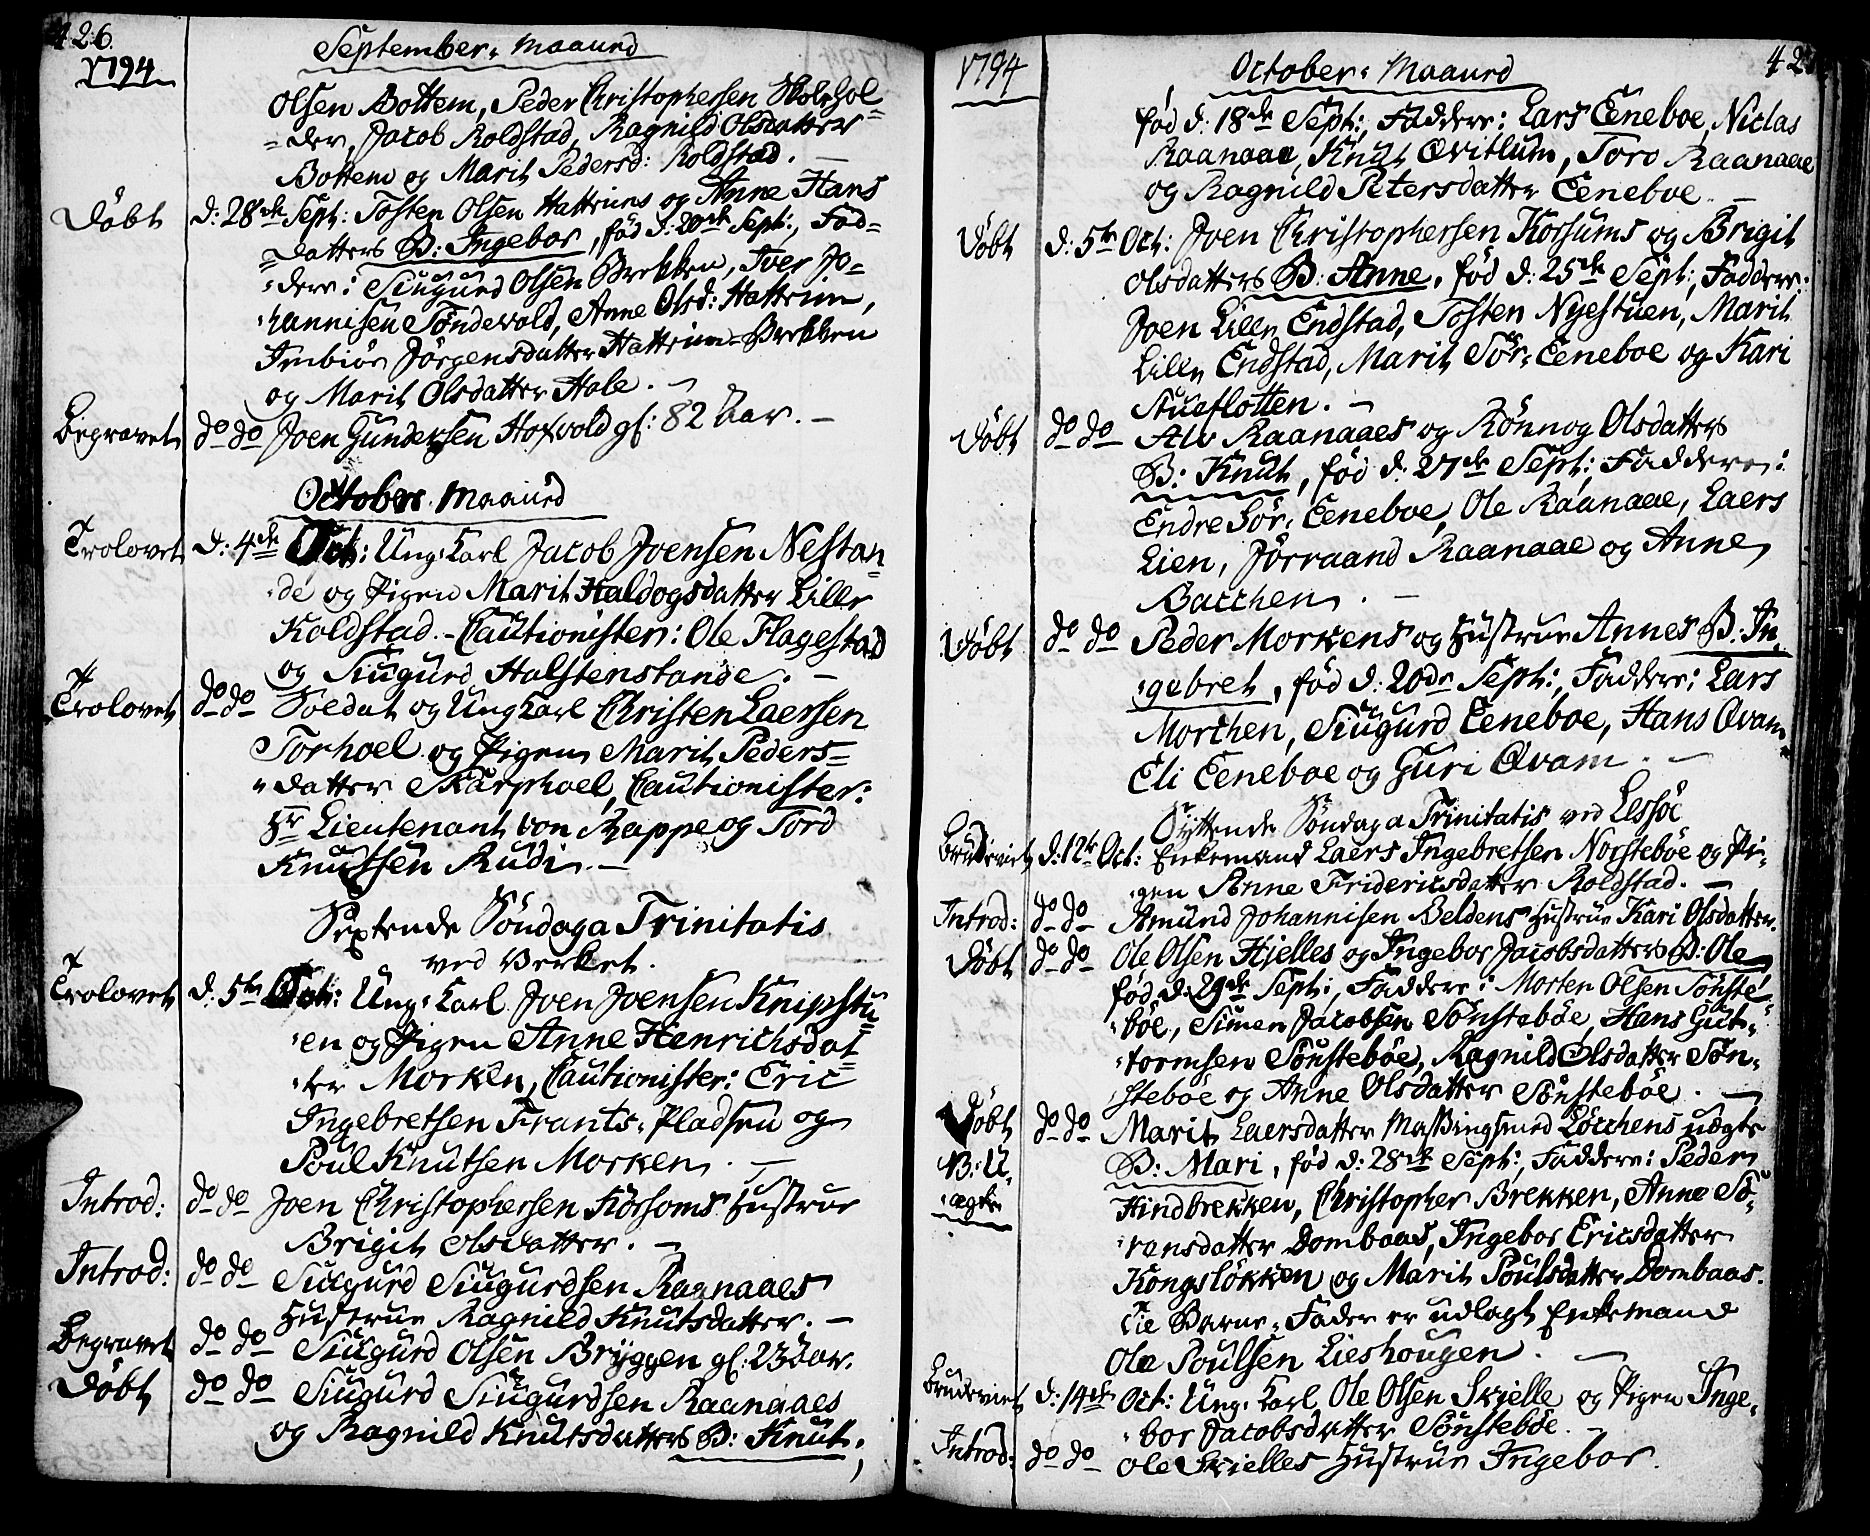 426.
1794
September: Maaned
Olsen Bottem, Peder Christophersen Skolehol-
-der, Jacob Roldstad, Ragnild Olsdatter
Bottem og Marit Pedersd: Roldstad. -
Døbt d: 28de Sept: Tosten Olsen Hattrems og Anne Hans
datters B: Ingebor, fød d: 20de Sept:, Fad-
-dere: Siugurd Olsen Brekken, Iver Jo-
hannisen Tøndevold, Anne Olsd: Hattrem,
Imbiør Jørgensdatter Hattrim-Brekken
og Marit Olsdatter Hole. -
Begravet do do Joen Gundersen Hofvold gl: 82 Aar. -
October Maaned
Trolovet d: 4de Oct: Ung-Karl Jacob Joensen Nestan-
de og Pigen Marit Haldogsdatter Lille
Koldstad. - Cautionister: Ole Flagestad
og Siugurd Halstenstande. -
Trolovet do do Soldat og Ung Karl Christen Laersen
Torhoel og Pigen Marit Peders-
datter Skarphoel, Cautionister:
Hr Lieutenant von Krappe og Tord
Knutsen Rudi. -
Sextende Søndag a Trinitatis
ved Verket.
Trolovet d: 5te Oct: Ung-Karl Joen Joensen Knipstu-
en og Pigen Anne Henrichsdat-
ter Morken, Cautionister: Eric
Ingebretsen Frants-Pladsen og
Poul Knutsen Morken. -
Introd: do do Joen Christophersen Korsoms Hustrue
Brigit Olsdatter. -
Introd: do do Siugurd Siugurdsen Raanaaes
Hustrue Ragnild Knutsdatter. -
Begravet do do Siugurd Olsen Bryggen gl: 23 Aar.
Døbt do do Siugurd Siugurdsen Raanaaes
og Ragnild Knutsdatters B: Knut,
1794
October: Maaned
fød d: 18de Sept:, Faddere: Lars Eeneboe, Niclas
Raanaae, Knut Qvitlum, Toro Raanaae
og Ragnild Petersdatter Eeneboe. -
Døbt d: 5te Oct: Joen Christophersen Korsums og Brigit
Olsdatters B: Anne, fød d: 25de Sept:, Faddere:
Joen Lille Endstad, Tosten Nyestuen, Marit
Lille Endstad, Marit Sør-Eeneboe og Kari
Stueflotten. -
Døbt do do Alv Raanaaes og Rønnog Olsdatters
B: Knut, fød d: 27de Sept: Faddere:
Endre Sør-Eeneboe, Ole Raanaae, Laers
Lien, Jørraand Raanaae og Anne
Bacchen. -
Døbt do do Peder Morkens og Hustrue Annes B: In-
gebret, fød d: 20de Sept:, Faddere: Lars
Morchen, Siugurd Eeneboe, Hans Qvam
Eli Eeneboe og Guri Qvam. -
Syttende Søndag a Trinitatis ved Lessøe
Brudeviet d: 12te Oct: Enkemand Laers Ingebretsen Norstebøe og Pi-
gen Anne Fridericsdatter Roldstad. -
Introd: do do Amund Johannisen Beldens Hustrue Kari Olsdatter.
Døbt do do Ole Olsen Hielles og Ingebor Jacobsdatters B: Ole
fød d: 29de Sept:, Faddere: Morten Olsen Sønste-
bøe, Simen Jacobsen Sønstebøe, Hans Gut-
tormsen Sønstebøe, Ragnild Olsdatter Søn-
stebøe og Anne Olsdatter Sønstebøe. -
Døbt do do Marit Laersdatter Massingsmed Løcchens uægte
NB: U-
ægte
B: Mari, fød d: 28de Sept:, Faddere: Peder
Hindbrekken, Christopher Brekken, Anne Sø-
rensdatter Dombaas, Ingebor Ericsdatter
Kongsløkken og Marit Poulsdatter Dombaas.
Tie Barne-Fader er udlagt Enkemand
Ole Poulsen Lieshougen. -
Brudeviet d: 14de Oct: Ung-Karl Ole Olsen Skielle og Pigen Inge-
bor Jacobsdatter Sønstebøe. -
Introd: do do Ole Skielles Hustrue Ingebor.